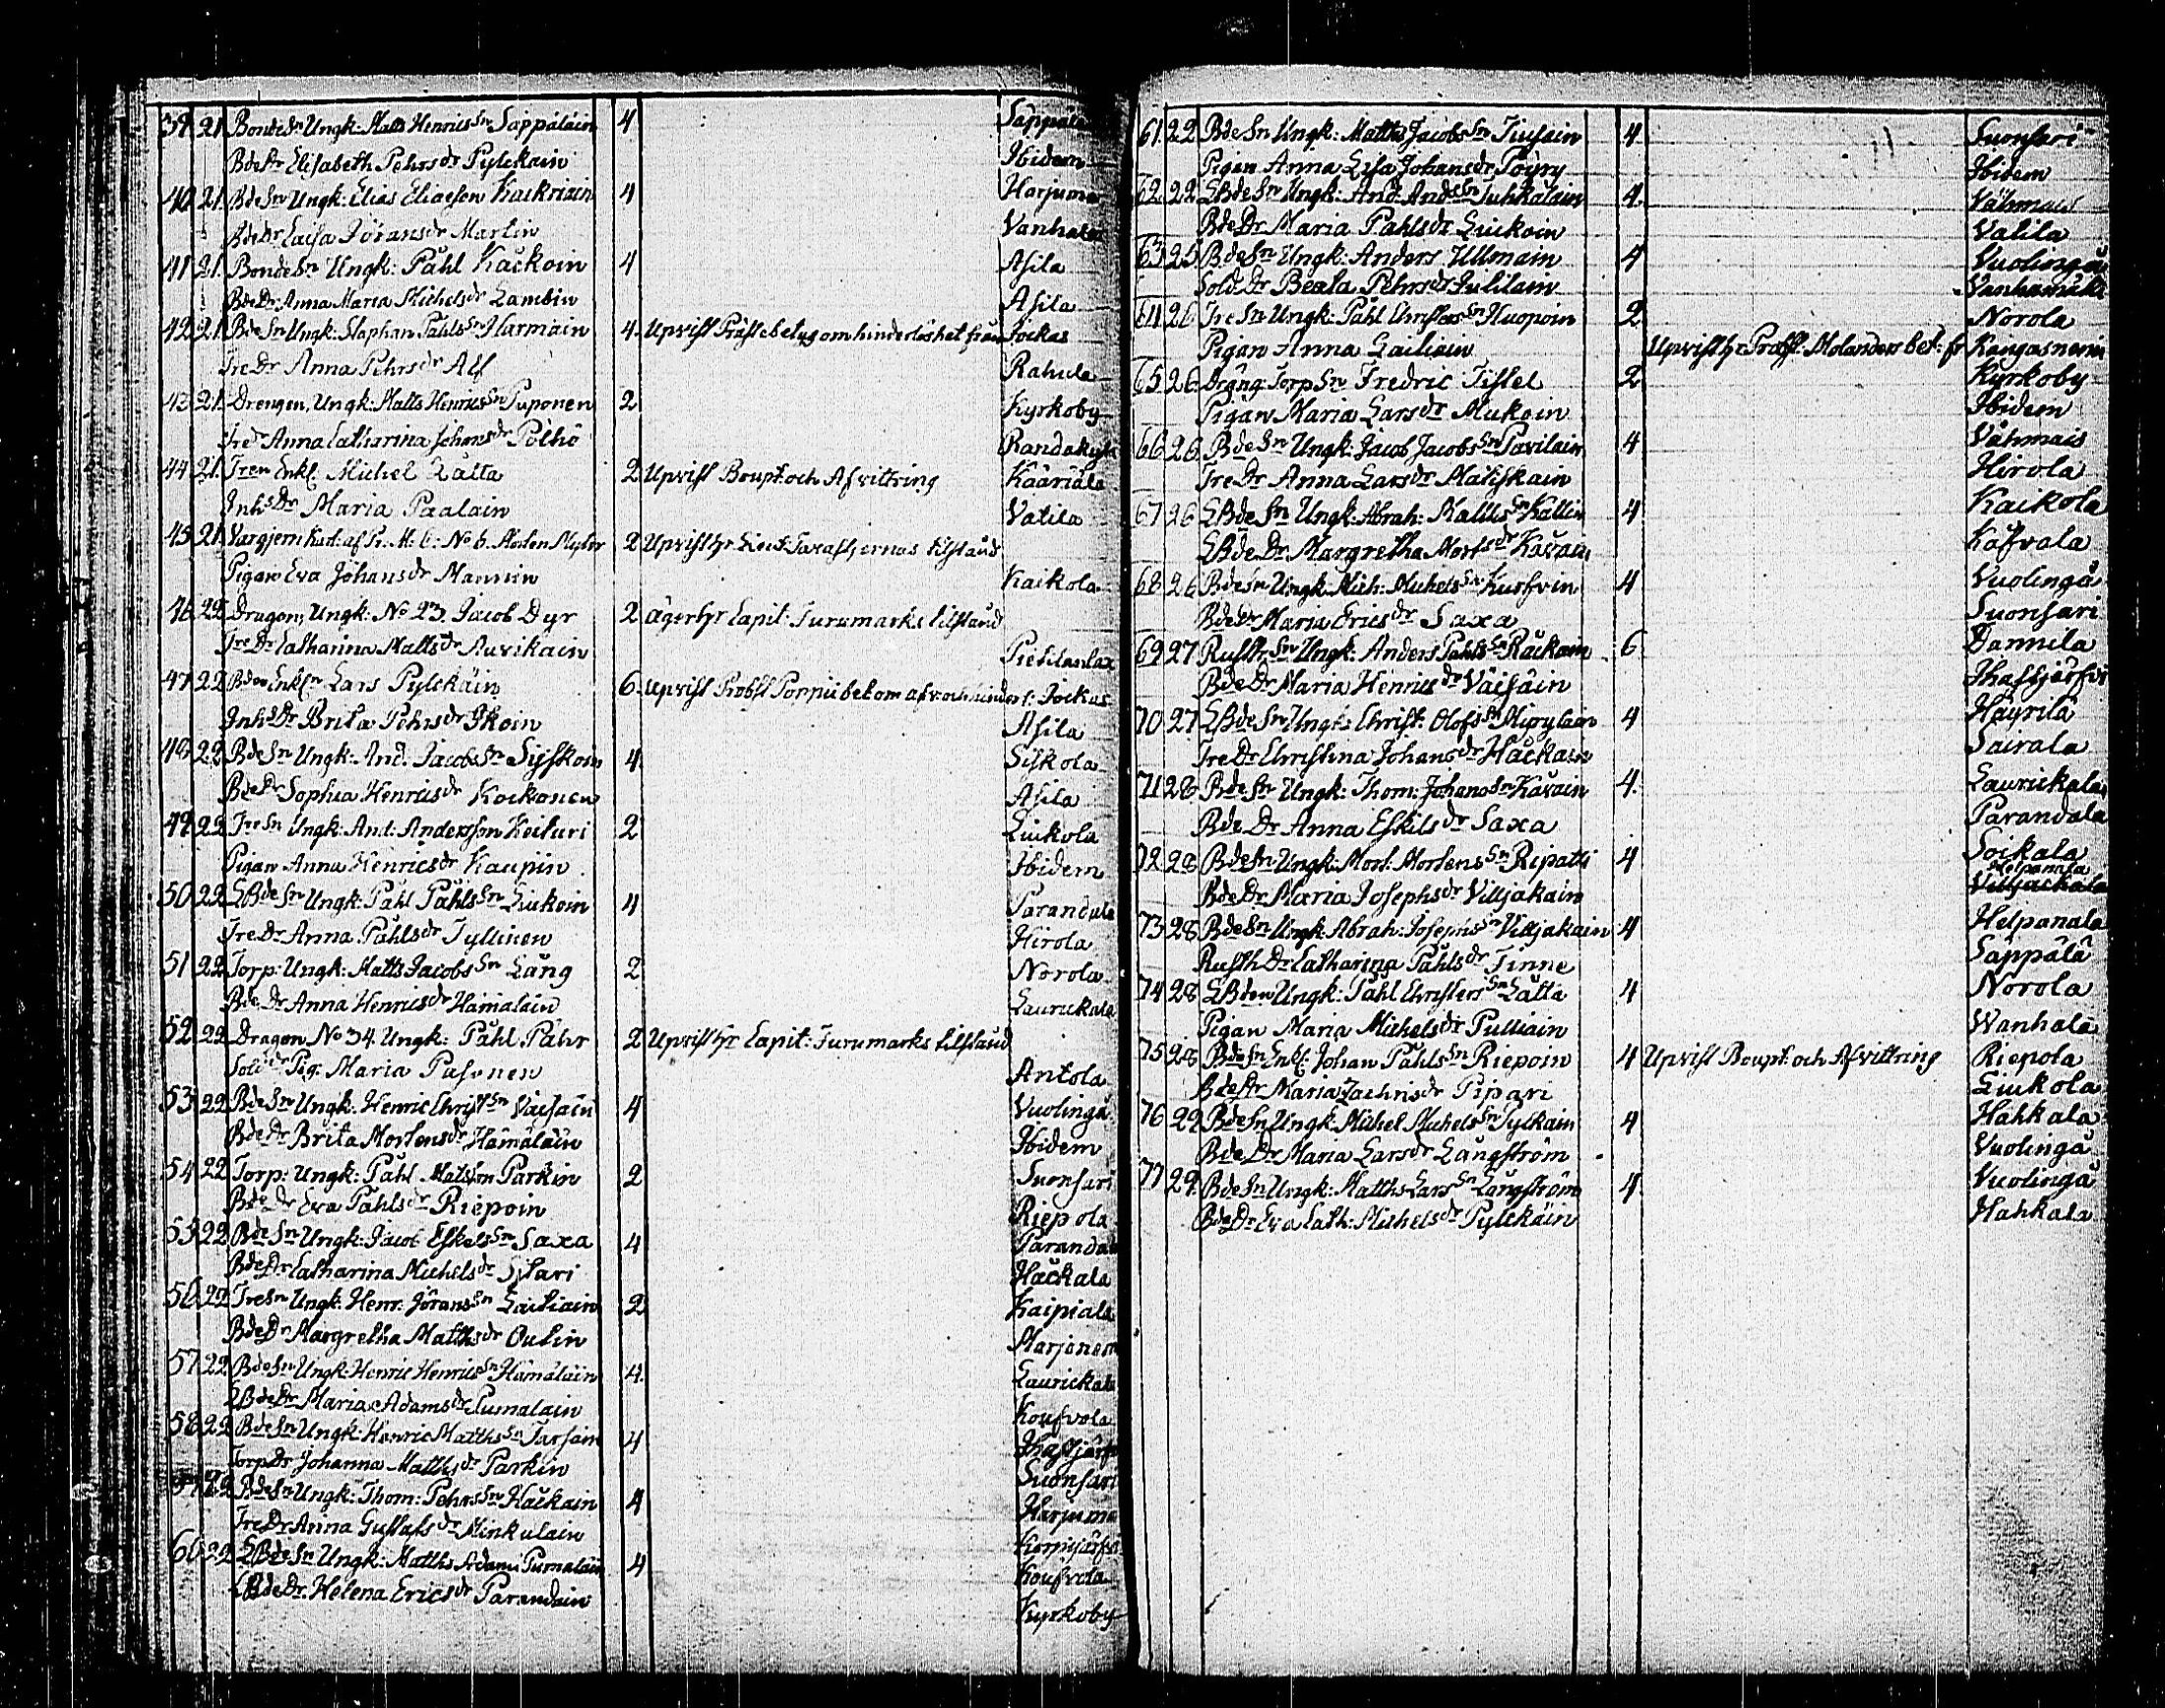 39 21 Bonde Sn Ungk: Matts Henrics Sn Sappälain 4 Sappäla
Bde Dr Elisabeth Pehrs dr Pylckäin Ibidem
40 21 Bde Sn Ungk: Elias Eliaeson Kaukiain 4 Harjuma
Bde Dr Caisa Jörans dr Martin Vanhala
41 21 Bonde Sn Ungk: Påhl Kackoin 4 Asila
Bde Dr Anna Maria Michels dr Lambin Asila
42 21 Bde Sn Ungk: Staphan Påhls Sn Harmain 4 Upvist Präste betyg om hinderlöshet från Jockas
Tre Dr Anna Pehrs dr Alf Rahula
43 21 Drengen, Ungk: Matts Henrics Sn Puponen 2 Kyrkoby
Tre dr Anna Catharina Johans dr Pöthö Randakylä
44 21 Tren Enkl: Michel Lätta 2 Upvist Boupt: och Afvittring Kääriäla
Inhs Dr Maria Paalain Vatila
45 21 Vargjern Karl: af No 6. Mårten 2 Upvist hr Lieut: tilstånd
Pigan Eva Johans dr Mannin Kaikola
46 22 Dragon, Ungk: No 23. Jacob Dyr 2 äger hr Capit: Furumarks tilstånd
Tre Dr Catharina Matts dr Auvikain Pietilänlax
47 22 Bden Enkl: Lars Pylckäin 6 Upvist Probst Poppii bet om afv: och hinderl: Jockas
Inhs Dr Brita Pehrs dr Ikoin Asila
48 22 Bde Sn Ungk: And: Jacobs Sn Sijskoin 4 Siskola
Bde Dr Sophia Henrics dr Kockonen Asila
49 22 Tre Sn Ungk: And: Andersson Keituri 2 Liukola
Pigan Anna Henrics dr Kaupin Ibidem
50 22 LBde Sn Ungk: Påhl Påhls Sn Liukoin 4 Parandala
Tre Dr Anna Påhls dr Tyllinen Hirola
51 22 Torp: Ungk: Matts Jacobs Sn Lång 2 Norola
Bde Dr Anna Henrics dr Hämäläin Laurickala
52 22 Dragon No 34. Ungk: Påhl Påhr 2 Upvist hr Capit: Furumarks tilstånd
Sold dr Pig: Maria Pasonen Antola
53 22 Bde Sn Ungk: Henric Christ: Sn Väisäin 4 Vuolinga
Bde Dr Brita Mortens dr Hämäläin Ibidem
54 22 Torp: Ungk: Påhl Matsson Parkin 2 Suonsari
Bde Dr Eva Påhls dr Riepoin Riepola
55 22 Bde Sn Ungk: Jacob Eskels Sn Saxa 4 Parandala
Bde Dr Catharina Michels dr Hackala
56 22 Tre Sn Ungk: Henr: Jörans Sn Laitiain 2 Kaipiala
Bde Dr Margretha Matths dr Outin Marjonem
57 22 Bde Sn Ungk: Henric Henrics Sn Hämäläin 4 Laurickala
LBde Dr Maria Adams dr Pumalain Koufvola
58 22 Bde Sn Ungk: Henric Matths Sn Tarsain 4
Torp Dr Johanna Matths dr Parkin Suonsari
59 22 Bde Sn Ungk: Thom: Pehrs Sn Hackain 4 Harjuma
Tre Dr Anna Gustafs dr Minkulain Korpijärfvi
60 22 LBde Sn Ungk: Matths Adams Pumaläin 4 Koufvola
LBde Dr Helena Erics dr Parandain Kyrkoby
61 22 Bde Sn Ungk: Matths Jacobs Sn Tiusain 4 Suonsari
Pigan Anna Lisa Johans dr Pöyry Ibidem
62 22 LBde Sn Ungk: And: Ands Sn Tuhkalain 4 Vähmais
Bde Dr Maria Påhls dr Liukoin Vatila
63 25 Bde Sn Ungk: Anders Ullmain 4 Vuolinga
Sold: Dr Beata Pehrs dr Vanhamäki
64 26 Tre Sn Ungk: Påhl Christers Sn Huopoin 2 Norola
Pigan Anna Laitiain Upvist hr Probst: Molanders bet: fr Kangasnemi
65 26 Dräng Torp Sn Fredric Tistel 2 Kyrkoby
Pigan Maria Lars dr Mukoin Ibidem
66 26 Bde Sn Ungk: Jacob Jacobs Sn Pavilain 4 Vähmais
Tre Dr Anna Lars dr Matiskain Hirola
67 26 LBde Sn Ungk: Abrah: Matths Sn Kåttin 4 Kaikola
LBde Dr Margretha Morts dr Kåvain Kåfvala
68 26 Bde Sn Ungk: Mich: Michels Sn Kusfvin 4 Vuolinga
Bde Dr Maria Erics dr Saxa Suonsari
69 27 Rusth: Sn Ungk: Anders Påhls Sn Räckain 6 Dannila
Bde Dr Maria Henrics dr Väisäin
70 27 LBde Sn Ungk: Christ: Olofs Sn 4 Häyrilä
Tre Dr Christina Johans dr Hackain Sairala
71 28 Bde Sn Ungk: Thom: Johans Sn Kåvain 4 Laurickala
Bde Dr Anna Eskils dr Saxa Parandala
72 28 Bde Sn Ungk: Mort: Mortens Sn Ripatti 4 Soikala
Bde Dr Maria Josephs dr Villjakain Helpanala
Villjackala
73 28 Bde Sn Ungk: Abrah: Josephs Sn Villjakain 4 Helpanala
Rusth Dr Catharina Påhls dr Tinne Säppälä
74 28 LBden Ungk: Påhl Christers Sn Lätta 4 Norola
Pigan Maria Michels dr Pulliain Wanhala
75 28 Bde Sn Enkl: Johan Påhls Sn Riepoin 4 Upvist Boupt: och Afvittring Riepola
Bde Dr Maria Zachris dr Pipari Liukola
76 29 Bde Sn Ungk: Michel Michels Sn Pylkäin 4 Hahkala
Bde Dr Maria Lars dr Långström Vuolinga
77 29 Bde Sn Ungk: Matths Lars Sn Långström 4 Vuolinga
Bde Dr Eva Cath: Michels dr Pylckäin Hahkala